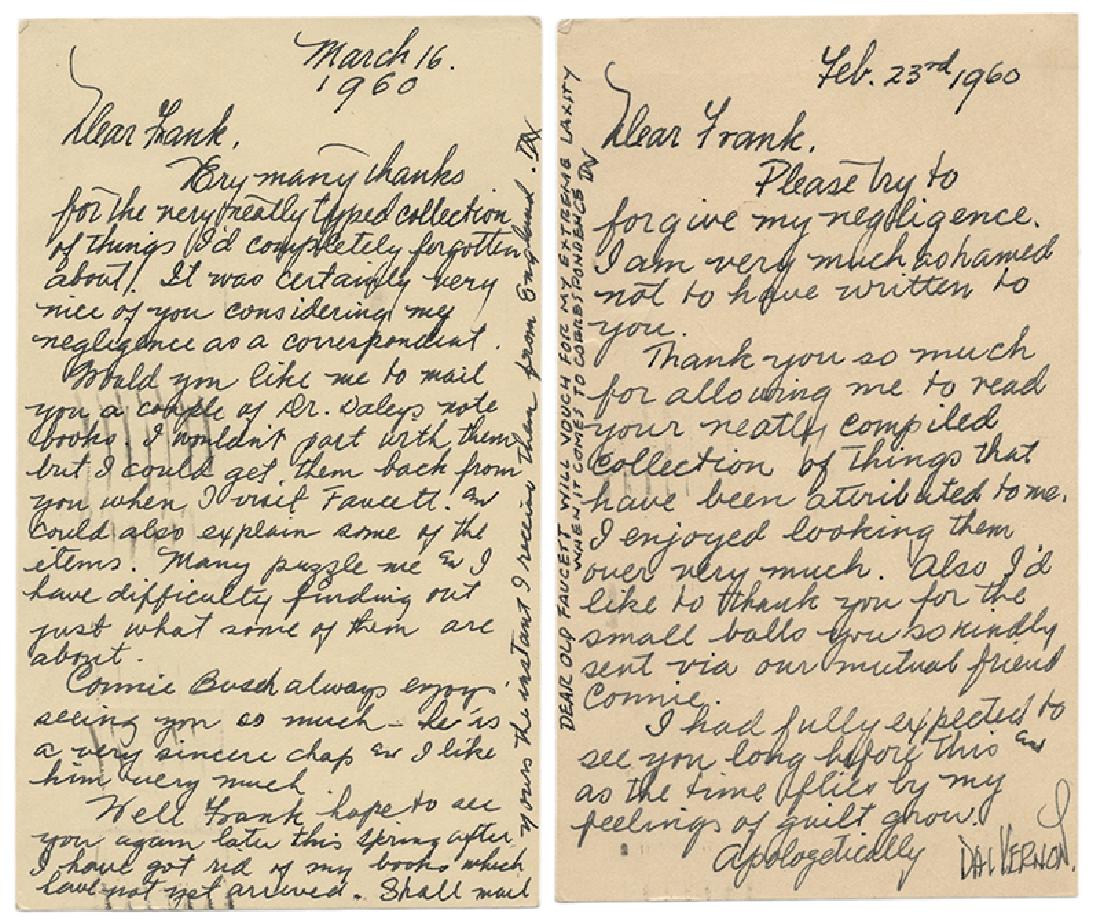 March 16.
1960
Dear Frank,
Very many thanks
for the very neatly typed collection
of things I'd completely forgotten
about! It was certainly very
nice of you considering my
negligence as a correspondent.
Would you like me to mail
you a couple of Dr. Daleys note
books. I wouldn't part with them
but I could get them back from
you when I visit Faucett. &
could also explain some of the
items. Many puzzle me & I
have difficulty finding out
just what some of them are
about.
Connie Busch always enjoys
seeing you so much – he is
a very sincere chap & I like
him very much
Well Frank hope to see
you again later this spring after
I have got rid of my books which
have not yet arrived. Shall mail
yours the instant I receive them from England. DV
Feb. 23rd 1960
Dear Frank,
Please try to
forgive my negligence.
I am very much ashamed
not to have written to
you.
Thank you so much
for allowing me to read
your neatly compiled
collection of things that
have been atributed to me.
I enjoyed looking them
over very much. Also I'd
like to thank you for the
small balls you so kindly
sent via our mutual friend
Connie.
I had fully expected to
see you long before this &
as the time flies by my
feelings of guilt grow.
Apologetically DAI VERNON.
DEAR OLD FAUCETT WILL VOUCH FOR MY EXTREME LAXITY
WHEN IT COMES TO CORRESPONDENCE DV